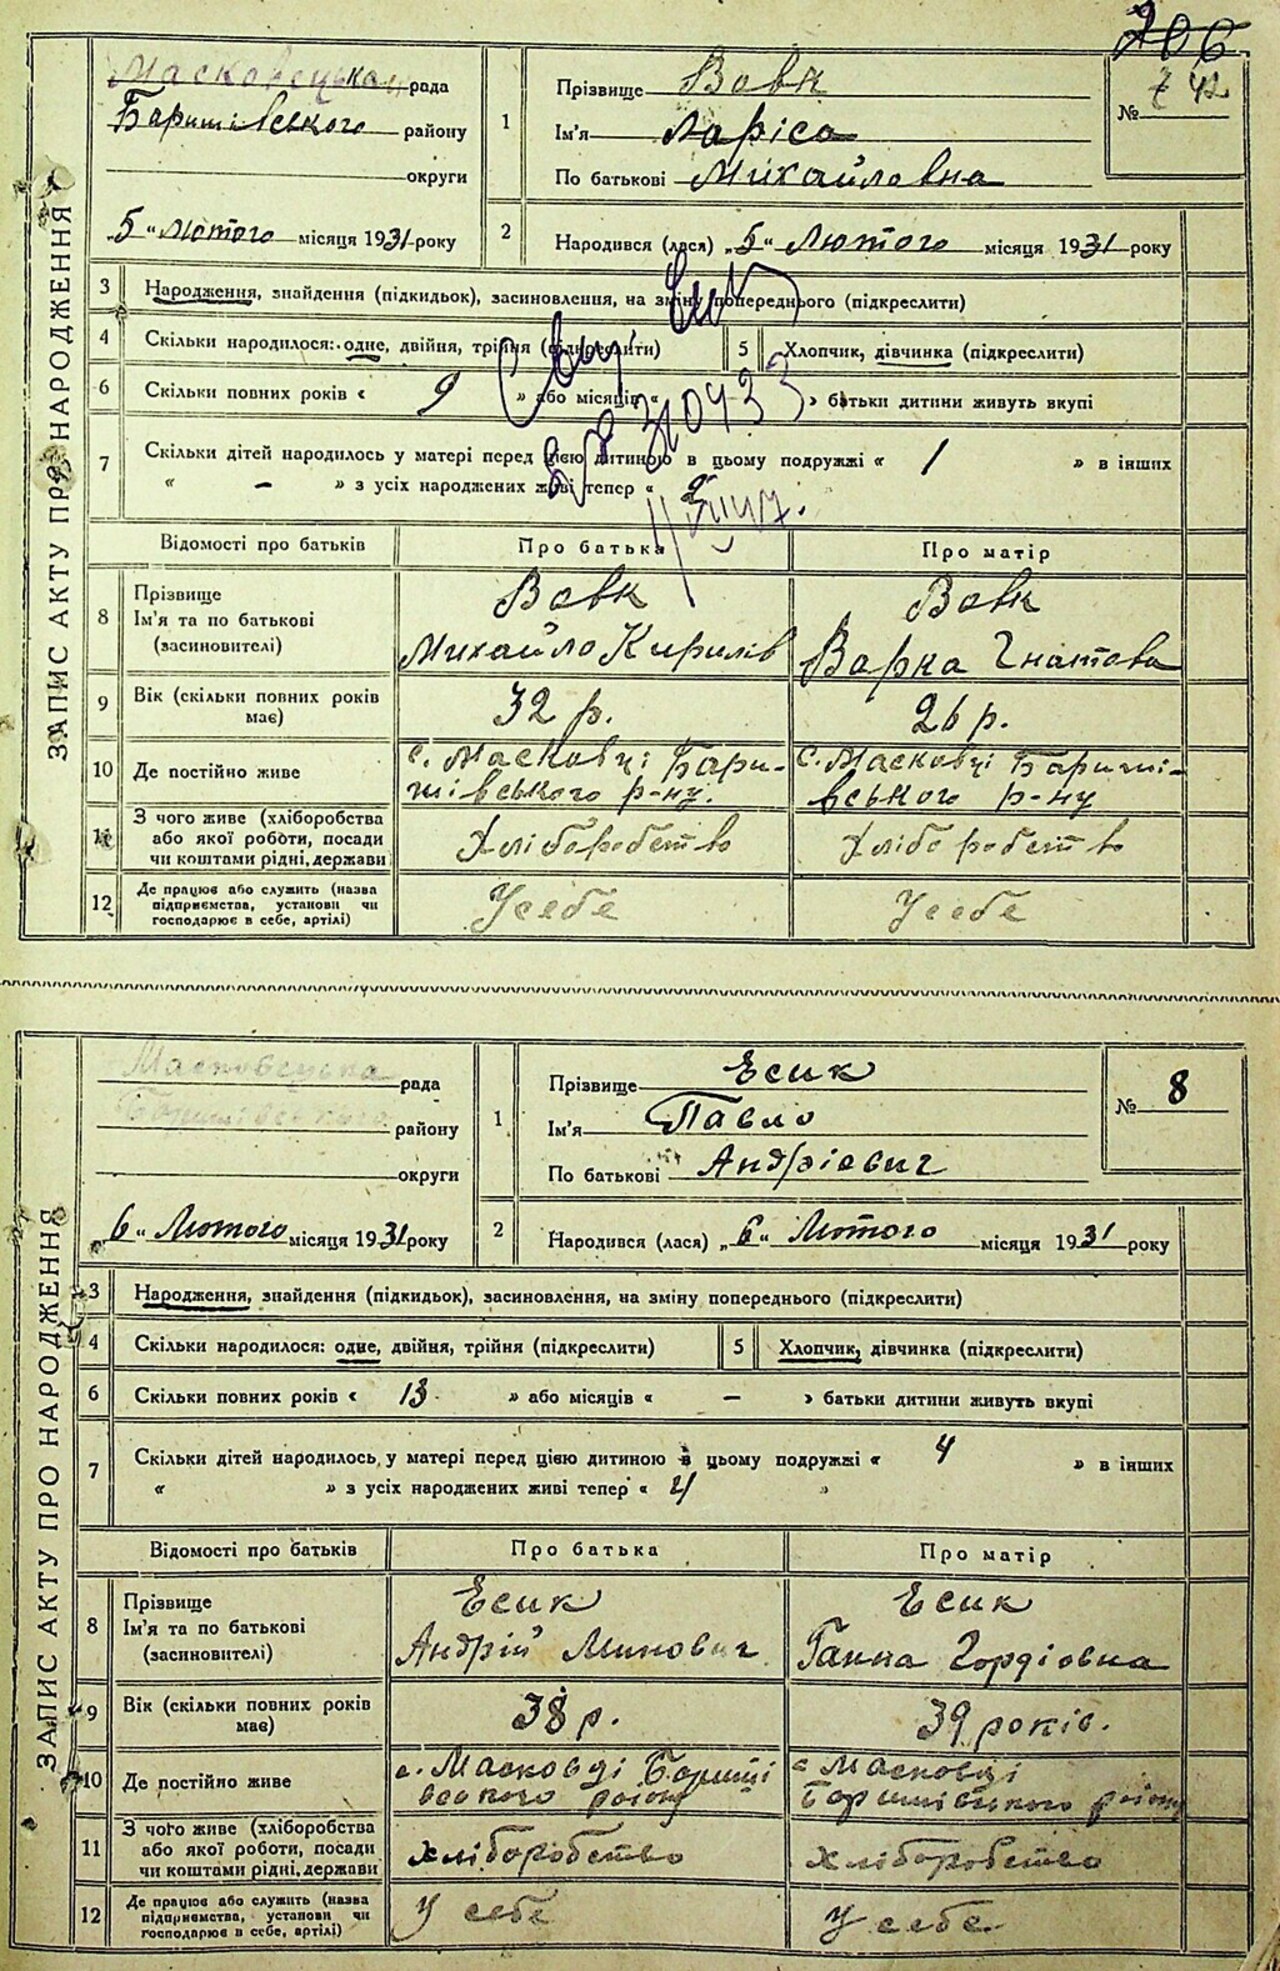 206
ЗАПИС АКТУ ПРО НАРОДЖЕННЯ
Масковецька рада
Баришівського району
округи
„5“ Лютого місяця 1931 року
1
Прізвище Вовк
Ім'я Ларіса
По батькові Михайловна
№
2
Народився (лася) „5“ Лютого місяця 1931 року
3 Народження, знайдення (підкидьок), засиновлення, на зміну попереднього (підкреслити)
4 Скільки народилося: одне, двійня, трійня (підкреслити) 5 Хлопчик, дівчинка (підкреслити)
6 Скільки повних років « 9 » або місяців « » батьки дитини живуть вкупі
7 Скільки дітей народилось у матері перед цією дитиною в цьому подружжі « 1 » в інших
« – » з усіх народжених живі тепер « 2
Відомості про батьків Про батька Про матір
8 Прізвище Вовк Вовк
Ім'я та по батькові Михайло Кирилів Варка Гнатова
(засиновителі)
9 Вік (скільки повних років має) 32 р. 26 р.
10 Де постійно живе с. Масковці Бари- с. Масковці Бариші-
шівського р-ну. вського р-ну
11 З чого живе (хліборобства
або якої роботи, посади Хліборобство Хліборобство
чи коштами рідні, держави
12 Де працює або служить (назва
підприємства, установи чи У себе У себе
господарює в себе, артілі)
ЗАПИС АКТУ ПРО НАРОДЖЕННЯ
Масковецька рада
Баришівського району
округи
„6“ Лютого місяця 1931 року
1
Прізвище Есик
Ім'я Павло
По батькові Андрієвич
№ 8
2
Народився (лася) „6“ Лютого місяця 1931 року
3 Народження, знайдення (підкидьок), засиновлення, на зміну попереднього (підкреслити)
4 Скільки народилося: одне, двійня, трійня (підкреслити) 5 Хлопчик, дівчинка (підкреслити)
6 Скільки повних років « 13 » або місяців « – » батьки дитини живуть вкупі
7 Скільки дітей народилось у матері перед цією дитиною в цьому подружжі « 4 » в інших
« » з усіх народжених живі тепер « »
Відомості про батьків Про батька Про матір
8 Прізвище Есик Есик
Ім'я та по батькові Андрій Минович Ганна Гордіовна
(засиновителі)
9 Вік (скільки повних років має) 38 р. 39 років.
10 Де постійно живе с. Масковці Бариші с Масковці
вського району Баришівського району
11 З чого живе (хліборобства
або якої роботи, посади хліборобство хліборобство
чи коштами рідні, держави
12 Де працює або служить (назва
підприємства, установи чи У себе У себе
господарює в себе, артілі)